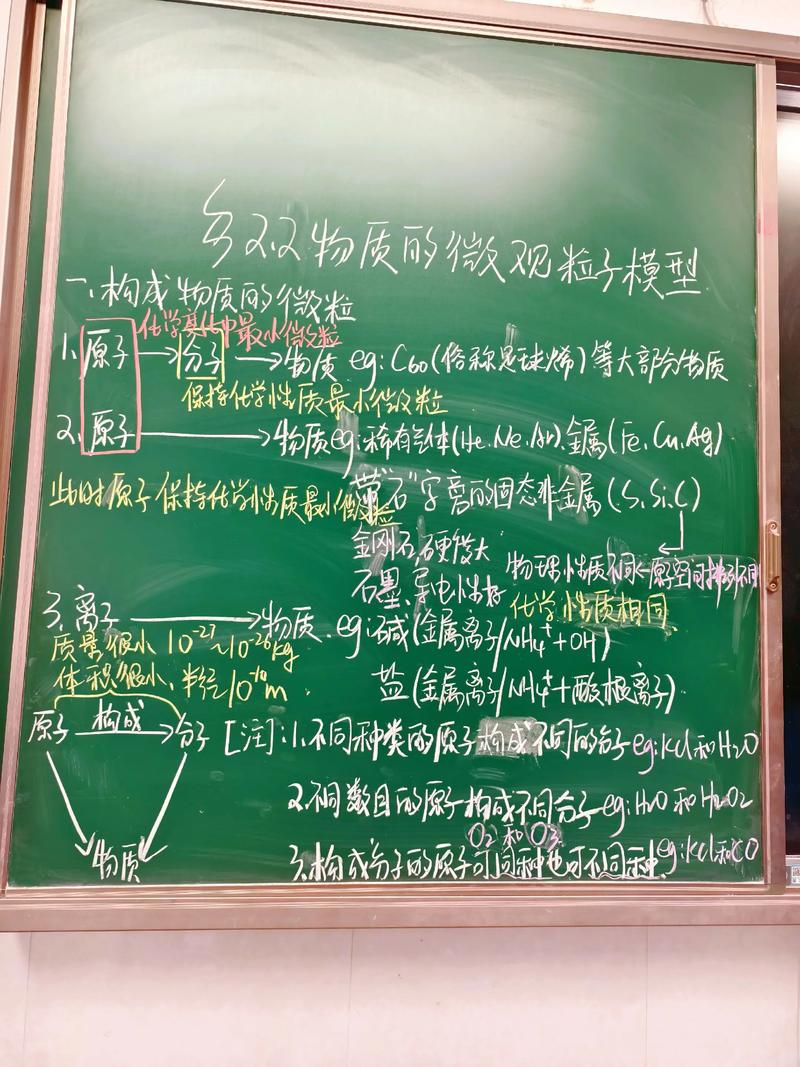 §2.2物质的微观粒子模型
一、构成物质的微粒
化学变化中最小微粒
1.原子→分子→物质 eg:C60(俗称足球烯)等大部分物质
保持化学性质最小微粒
2.原子→物质eg:稀有气体(He.Ne.Ar).金属(Fe.Cu.Ag)
此时原子保持化学性质最小微粒
带"石"字旁的固态非金属(S.Si.C)
金刚石,硬度大
物理性质不同←原空间排列不同
石墨、导电性好
化学性质相同
3.离子→物质.eg:碱(金属离子/NH4⁺+OH)
质量很小 10⁻²⁷~10⁻²⁶kg
盐(金属离子/NH4⁺+酸根离子)
体积很小,半径10⁻¹⁰m.
原子 构成→分子 [注]:1.不同种类的原子构成不同的分子eg:KCl和H2O
2.不同数目的原子构成不同分子eg:H2O和H2O2
O2和O3
3.构成分子的原子可同种也可不同种.eg:KCl和CO
物质